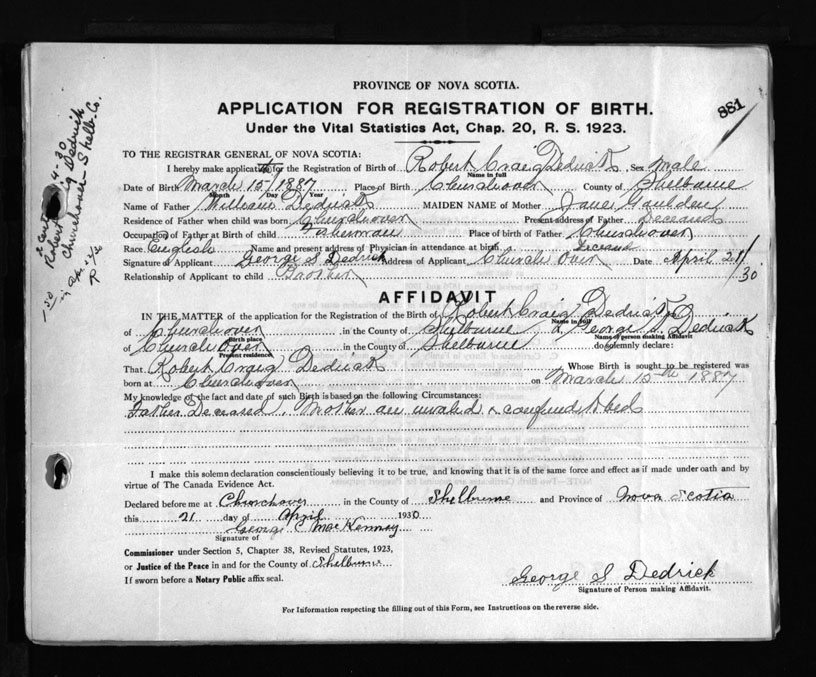 PROVINCE OF NOVA SCOTIA.
APPLICATION FOR REGISTRATION OF BIRTH.
Under the Vital Statistics Act, Chap. 20, R. S. 1923.
881
4-30
Robert Dedrick
Churchover - Shelb. Co.
TO THE REGISTRAR GENERAL OF NOVA SCOTIA:
I hereby make application for the Registration of Birth of Robert Craig Dedrick Sex Male
Name in full
Date of Birth March 15 1887 Place of Birth Churchover County of Shelburne
Month Day Year
Name of Father William Dedrick MAIDEN NAME of Mother Jane
Residence of Father when child was born Churchover Present address of Father Deceased
Occupation of Father at Birth of child Fisherman Place of birth of Father Churchover
Race English Name and present address of Physician in attendance at birth Deceased
Signature of Applicant George S Dedrick Address of Applicant Church Over Date April 21/30
Relationship of Applicant to child Brother
AFFIDAVIT
IN THE MATTER of the application for the Registration of the Birth of Robert Craig Dedrick
Name in full
of Churchover in the County of Shelburne I, George S. Dedrick
Birth place Name of person making Affidavit
of Church Over in the County of Shelburne do solemnly declare:
Present residence
That Robert Craig Dedrick Whose Birth is sought to be registered was
born at Churchover on March 15th 1887
My knowledge of the fact and date of such Birth is based on the following Circumstances:
Father Deceased. Mother an invalid & confined to bed
I make this solemn declaration conscientiously believing it to be true, and knowing that it is of the same force and effect as if made under oath and by
virtue of The Canada Evidence Act.
Declared before me at Churchover in the County of Shelburne and Province of Nova Scotia
this 21 day of April 1930
George C MacKenney
Signature of
Commissioner under Section 5, Chapter 38, Revised Statutes, 1923,
or Justice of the Peace in and for the County of Shelburne
If sworn before a Notary Public affix seal.
George S Dedrick
Signature of Person making Affidavit.
For Information respecting the filling out of this Form, see Instructions on the reverse side.